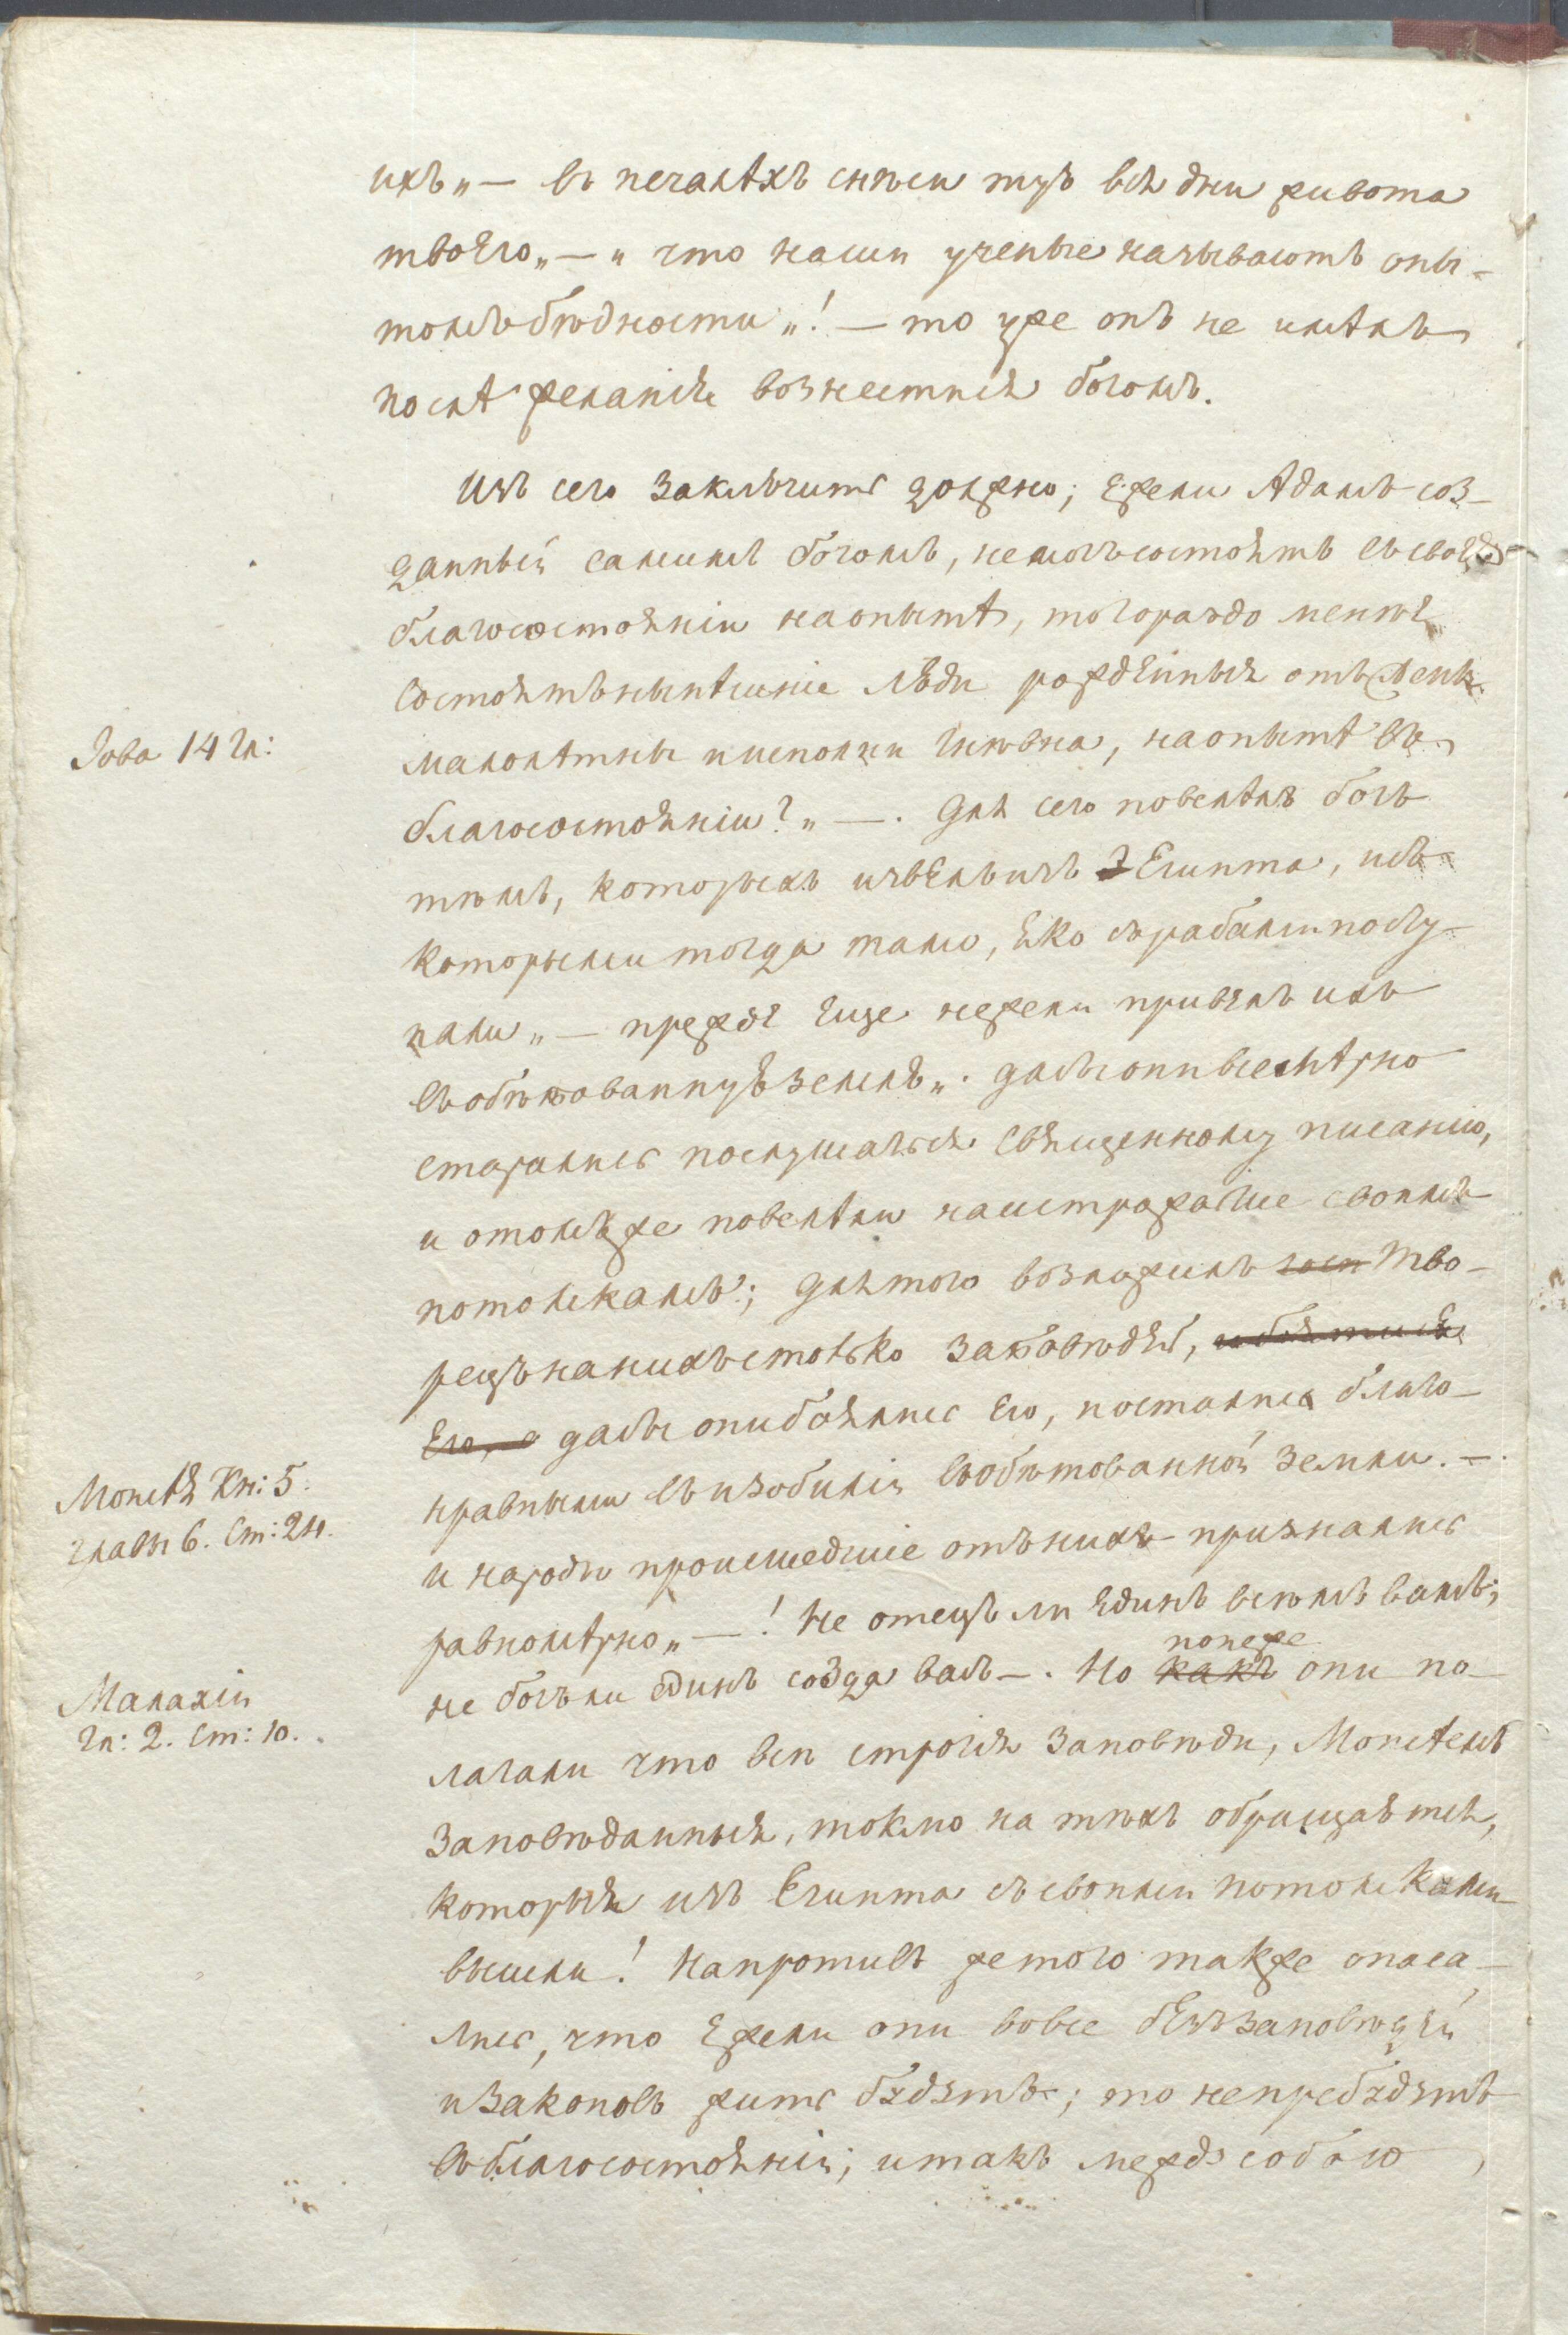 ихъ„ — въ печалѣхъ снѣси тую вся дни живота
твоего„ — „ что наши ученые называютъ опы-
томъ бѣдности„! — то уже онъ не имѣлъ
послѣ желанія вознестися богомъ.
Изъ сего заключить должно; ежели Адамъ соз-
данный самимъ богомъ, не могъ состоять въ своемъ
благосостояніи на опытѣ, то гораздо менѣе
Іова 14 гл:
состоятъ нынѣшніе люди рожденныя отъ жены
малолѣтны и исполни гнѣвна, на опытѣ въ
благосостояніи?„ — . Для сего повелѣлъ богъ
тѣмъ, которыхъ извелъ изъ Египта, и съ
которыми тогда тамо, яко съ рабами посту-
пали„ — прежде еще нежели привелъ ихъ
въ обѣтованную землю„. дабы они всемѣрно
старались послушаться священному писанію,
и о томъ же повелѣли настрожайше своимъ
потомкамъ; для того возложилъ Тво-
рецъ на нихъ столько заповѣдей, и боятися
Его, а дабы они боялись Его, и остались благо-
Моисея Кн: 5.
главы 6. Ст: 24.
нравными въ изобиліи въ обѣтованной земли. — .
и народы происшедшіе отъ нихъ признались
равномѣрно„ — ! Не отецъ ли единъ всѣмъ вамъ;
Малахіи
гл: 2. Ст: 10.
не богъ ли единъ созда васъ — . Но какъ понеже они по-
лагали что всѣ строгія заповѣди, Моисеемъ
заповѣданныя, токмо на тѣхъ обращаются,
которыя изъ Египта съ своими потомками
вышли! Напротивъ же того также опаса-
лись, что ежели они вовсе безъ заповѣдей
и законовъ жить будутъ; то не пребудутъ
въ благосостояніи; и такъ между собою